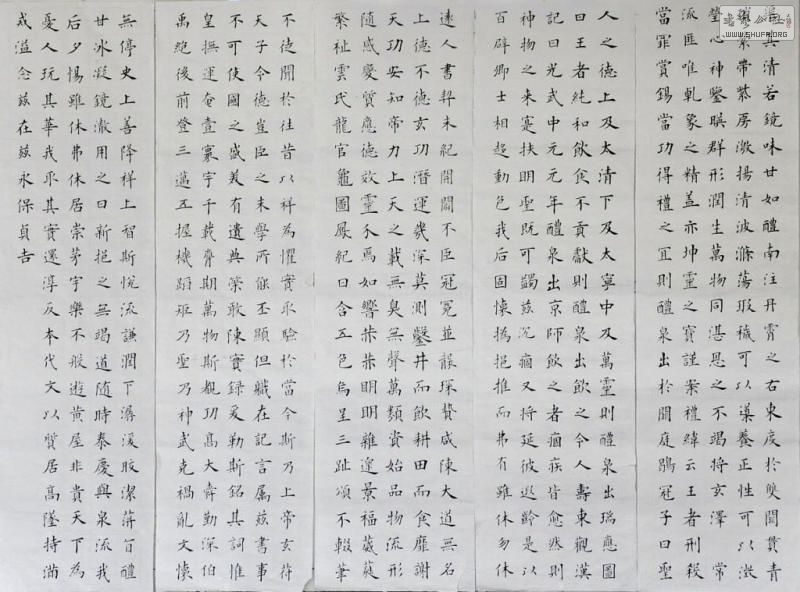 湛其清若鏡味甘如醴南注丹霄之右東度於雙闕貫青
瑣縈帶紫房激揚清波滌蕩瑕穢可以導養正性可以澂
瑩心神鑒暎群形潤生萬物同湛恩之不竭將玄澤常
流匪唯乹象之精蓋亦坤靈之寶謹案禮緯云王者刑殺
當罪賞錫當功得禮之宜則醴泉出於闕庭鶡冠子曰聖
人之德上及太清下及太寧中及萬靈則醴泉出瑞應圖
曰王者純和飲食不貢獻則醴泉出飲之令人壽東觀漢
記曰光武中元元年醴泉出京師飲之者痼疾皆愈然則
神物之來寔扶明聖既可蠲茲沉痼又將延彼遐齡是以
百辟卿士相趨動色我后固懷撝挹推而弗有雖休勿休
逮人書契未紀開闢不臣冠冕並襲琛贄咸陳大道無名
上德不德玄功潛運幾深莫測鑿井而飲耕田而食靡謝
天功安知帝力上天之載無臭無聲萬類資始品物流形
隨感變質應德效靈介焉如響赫赫明明雜遝景福葳蕤
繁祉雲氏龍官龜圖鳳紀日含五色烏呈三趾頌不輟筆
不徒聞於往昔以祥為懼實取驗於當今斯乃上帝玄符
天子令德豈臣之末學所能丕顯但職在記言属茲書事
不可使國之盛美有遺典策敢陳實録爰勒斯銘其詞惟
皇撫運奄壹寰宇千載膺期萬物斯覩功髙大舜勤深伯
禹絕後前登三邁五握機蹈矩乃聖乃神武克禍亂文懷
無停史上善降祥上智斯悅流謙潤下潺湲皎潔蓱旨醴
甘冰凝鏡澈用之日新挹之無竭道隨時泰慶與泉流我
后夕惕雖休弗休居崇茅宇樂不般遊黃屋非貴天下為
憂人玩其華我取其實還淳反本代文以質居高墜持滿
戒溢念茲在茲永保貞吉